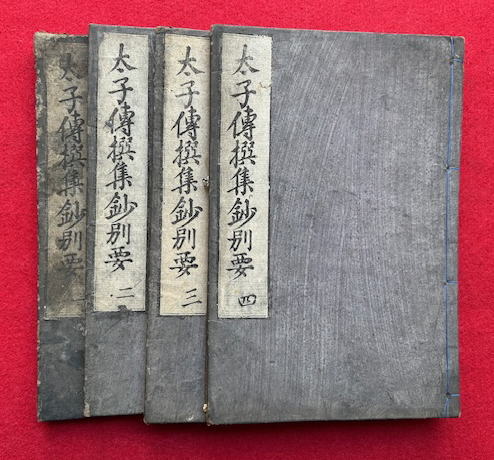 太子傳撰集鈔別要 一
太子傳撰集鈔別要 二
太子傳撰集鈔別要 三
太子傳撰集鈔別要 四